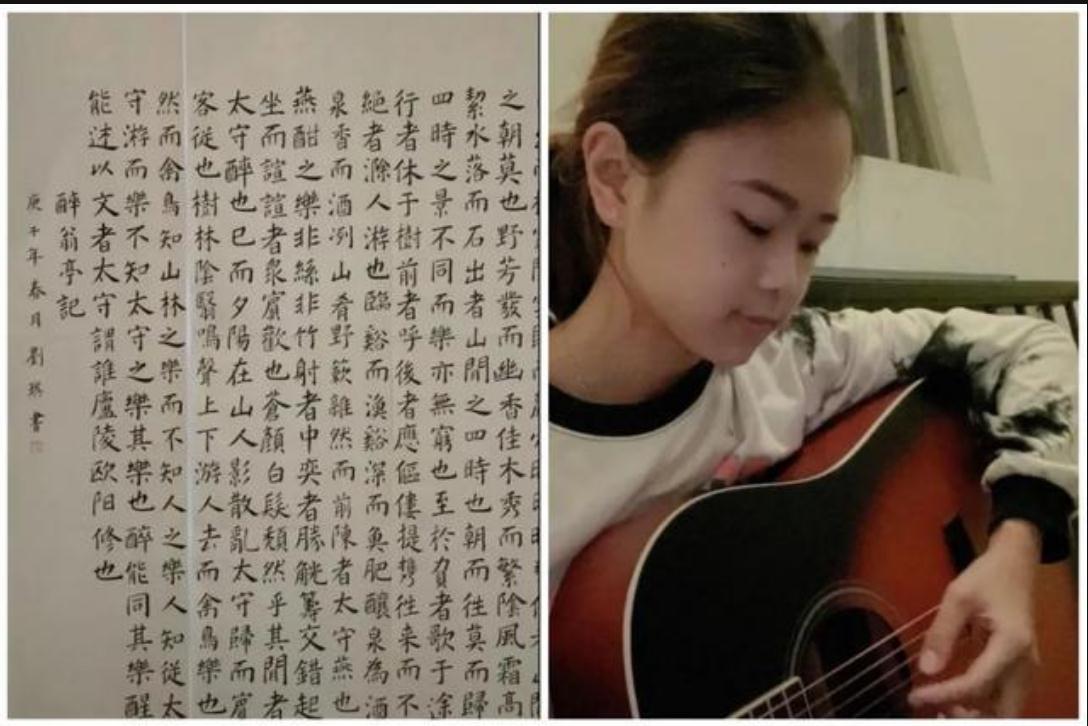 之朝莫也野芳發而幽香佳木秀而繁陰風霜高
絜水落而石出者山間之四時也朝而往莫而歸
四時之景不同而樂亦無窮也至於負者歌于涂
行者休于樹前者呼後者應傴僂提攜往来而不
絕者滁人游也臨谿而漁谿深而魚肥釀泉為酒
泉香而酒洌山肴野蔌雜然而前陳者太守燕也
燕酣之樂非絲非竹射者中奕者勝觥籌交錯起
坐而諠諠者眾賓歡也蒼顏白髮頹然乎其間者
太守醉也已而夕陽在山人影散亂太守歸而賓
客從也樹林陰翳鳴聲上下游人去而禽鳥樂也
然而禽鳥知山林之樂而不知人之樂人知從太
守游而樂不知太守之樂其樂也醉能同其樂醒
能述以文者太守謂誰廬陵欧阳修也
醉翁亭記
庚午年春月劉書